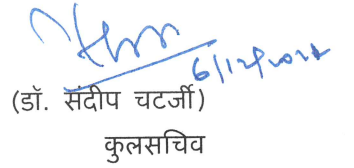 6/12/2022
(डॉ. संदीप चटर्जी)
कुलसचिव